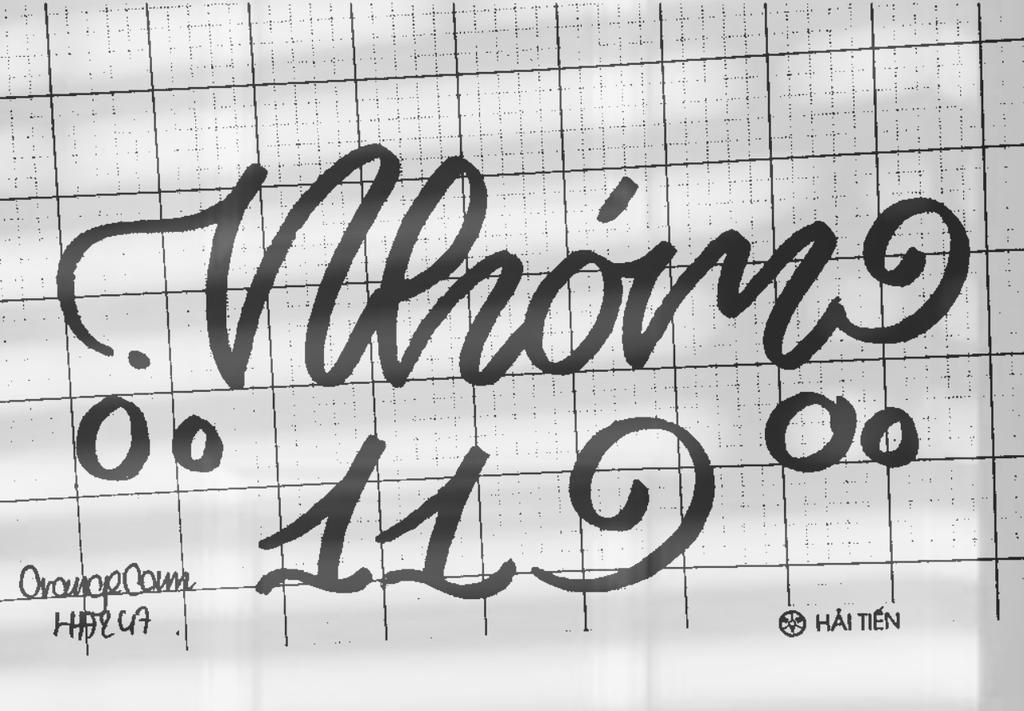 Nhóm
11
OrangeCam
HẢI TIẾN